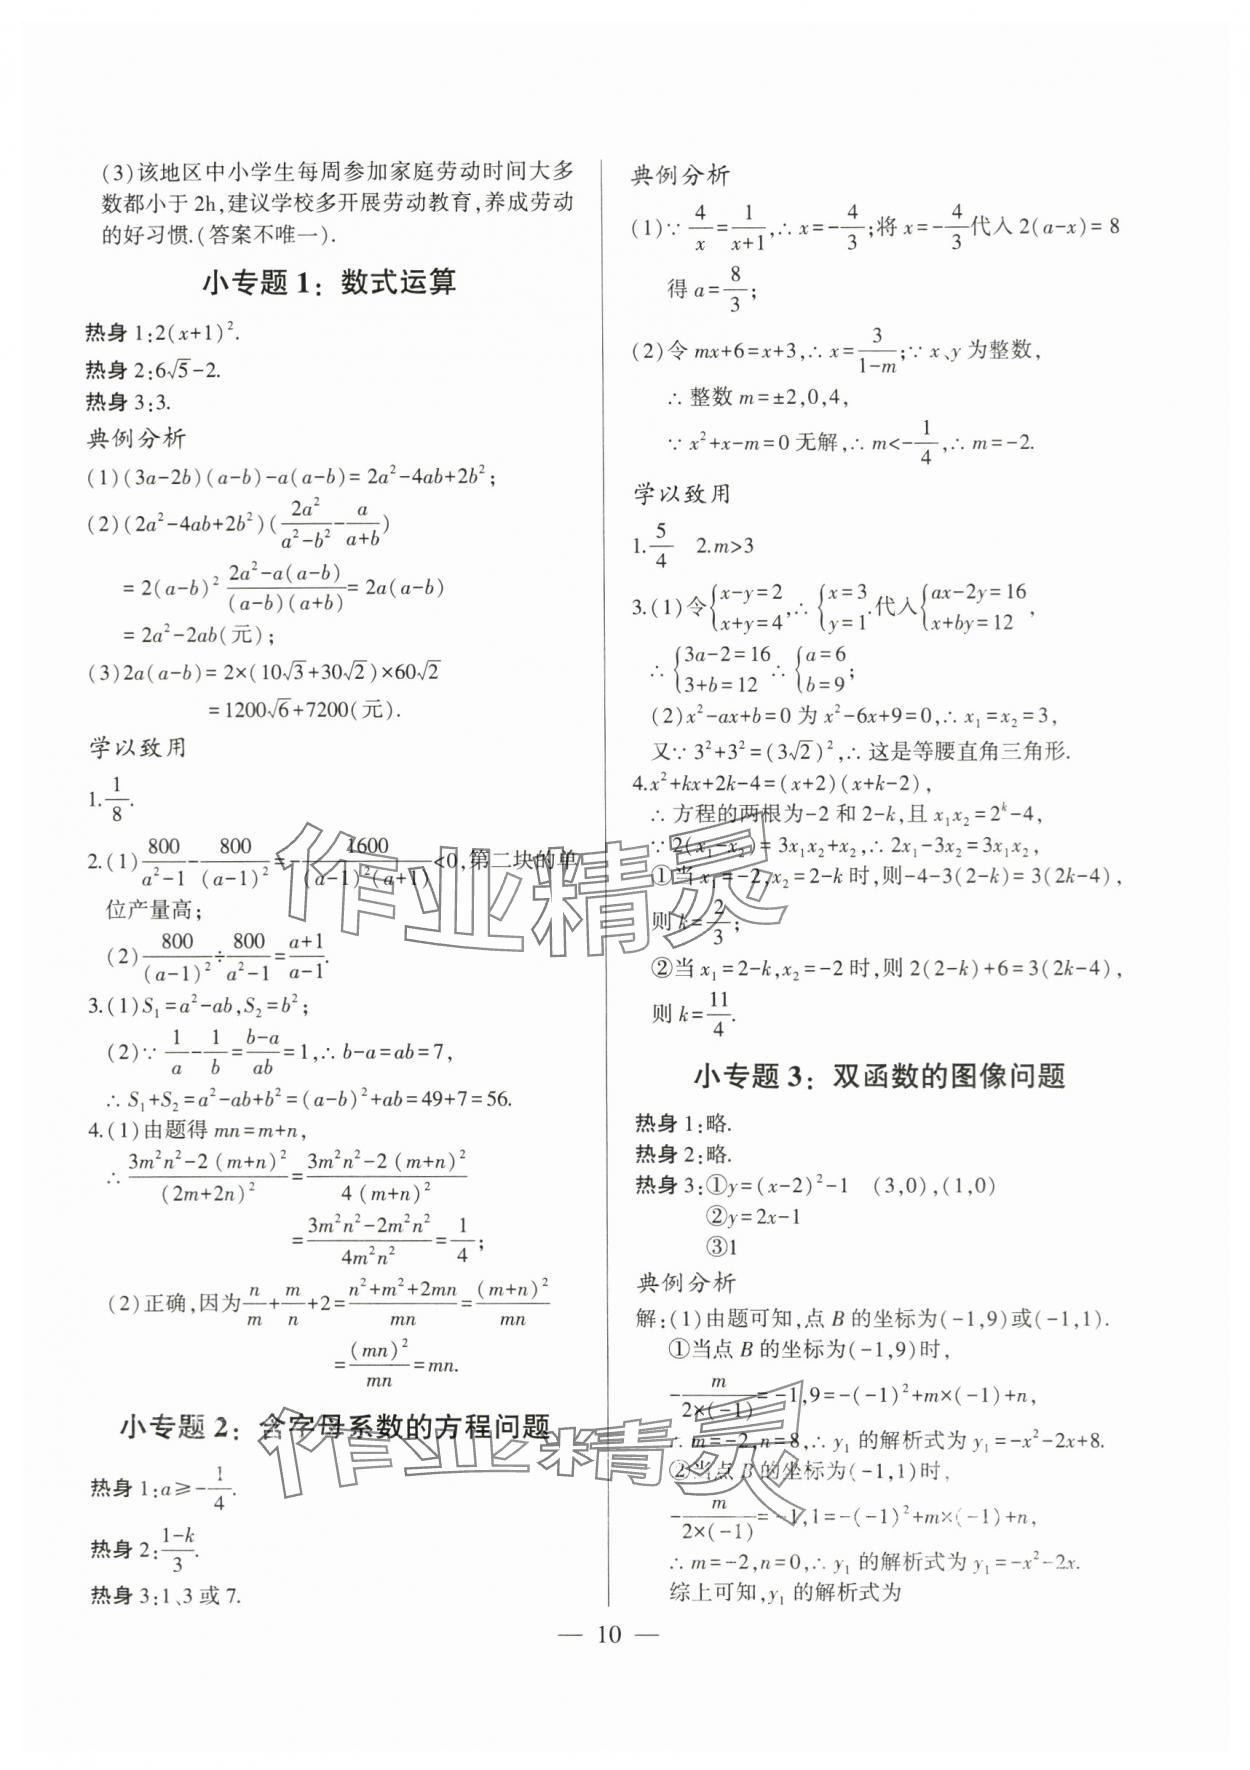 (3)该地区中小学生每周参加家庭劳动时间大多
数都小于 2h,建议学校多开展劳动教育,养成劳动
的好习惯.(答案不唯一).
小专题 1：数式运算
热身 1:2(x+1)².
热身 2:6√5-2.
热身 3:3.
典例分析
(1)(3a-2b)(a-b)-a(a-b)=2a²-4ab+2b²;
(2)(2a²-4ab+2b²)(2a²/(a²-b²)-a/(a+b))
=2(a-b)² (2a²-a(a-b))/((a-b)(a+b))=2a(a-b)
=2a²-2ab(元);
(3)2a(a-b)=2×(10√3+30√2)×60√2
=1200√6+7200(元).
学以致用
1.1/8.
2.(1)800/(a²-1)-800/(a-1)²=-1600/((a-1)²(a+1))<0,第二块的单
位产量高;
(2)800/(a-1)²÷800/(a²-1)=(a+1)/(a-1).
3.(1)S₁=a²-ab,S₂=b²;
(2)∵1/a-1/b=(b-a)/ab=1,∴b-a=ab=7,
∴S₁+S₂=a²-ab+b²=(a-b)²+ab=49+7=56.
4.(1)由题得 mn=m+n,
∴(3m²n²-2(m+n)²)/(2m+2n)²=(3m²n²-2(m+n)²)/(4(m+n)²)
=(3m²n²-2m²n²)/(4m²n²)=1/4;
(2)正确,因为n/m+m/n+2=(n²+m²+2mn)/mn=(m+n)²/mn
=(mn)²/mn=mn.
小专题 2：含字母系数的方程问题
热身 1:a≥-1/4.
热身 2:(1-k)/3.
热身 3:1、3 或 7.
典例分析
(1)∵4/x=1/(x+1),∴x=-4/3;将 x=-4/3代入 2(a-x)=8
得 a=8/3;
(2)令 mx+6=x+3,∴x=3/(1-m);∵x、y 为整数,
∴整数 m=±2,0,4,
∵x²+x-m=0 无解,∴m<-1/4,∴m=-2.
学以致用
1.5/4 2.m>3
3.(1)令{x-y=2 x+y=4,∴{x=3 y=1.代入{ax-2y=16 x+by=12,
∴{3a-2=16 3+b=12∴{a=6 b=9;
(2)x²-ax+b=0 为 x²-6x+9=0,∴x₁=x₂=3,
又∵3²+3²=(3√2)²,∴这是等腰直角三角形.
4.x²+kx+2k-4=(x+2)(x+k-2),
∴方程的两根为-2 和 2-k,且 x₁x₂=2ᵏ-4,
∵2(x₁-x₂)=3x₁x₂+x₂,∴2x₁-3x₂=3x₁x₂,
①当 x₁=-2,x₂=2-k 时,则-4-3(2-k)=3(2k-4),
则 k=2/3;
②当 x₁=2-k,x₂=-2 时,则 2(2-k)+6=3(2k-4),
则 k=11/4.
小专题 3：双函数的图像问题
热身 1:略.
热身 2:略.
热身 3:①y=(x-2)²-1 (3,0),(1,0)
②y=2x-1
③1
典例分析
解:(1)由题可知,点 B 的坐标为(-1,9)或(-1,1).
①当点 B 的坐标为(-1,9)时,
-m/(2×(-1))=-1,9=-(-1)²+m×(-1)+n,
∴m=-2,n=8,∴y₁ 的解析式为 y₁=-x²-2x+8.
②当点 B 的坐标为(-1,1)时,
-m/(2×(-1))=-1,1=-(-1)²+m×(-1)+n,
∴m=-2,n=0,∴y₁ 的解析式为 y₁=-x²-2x.
综上可知,y₁ 的解析式为
— 10 —
作业精灵
作业精灵